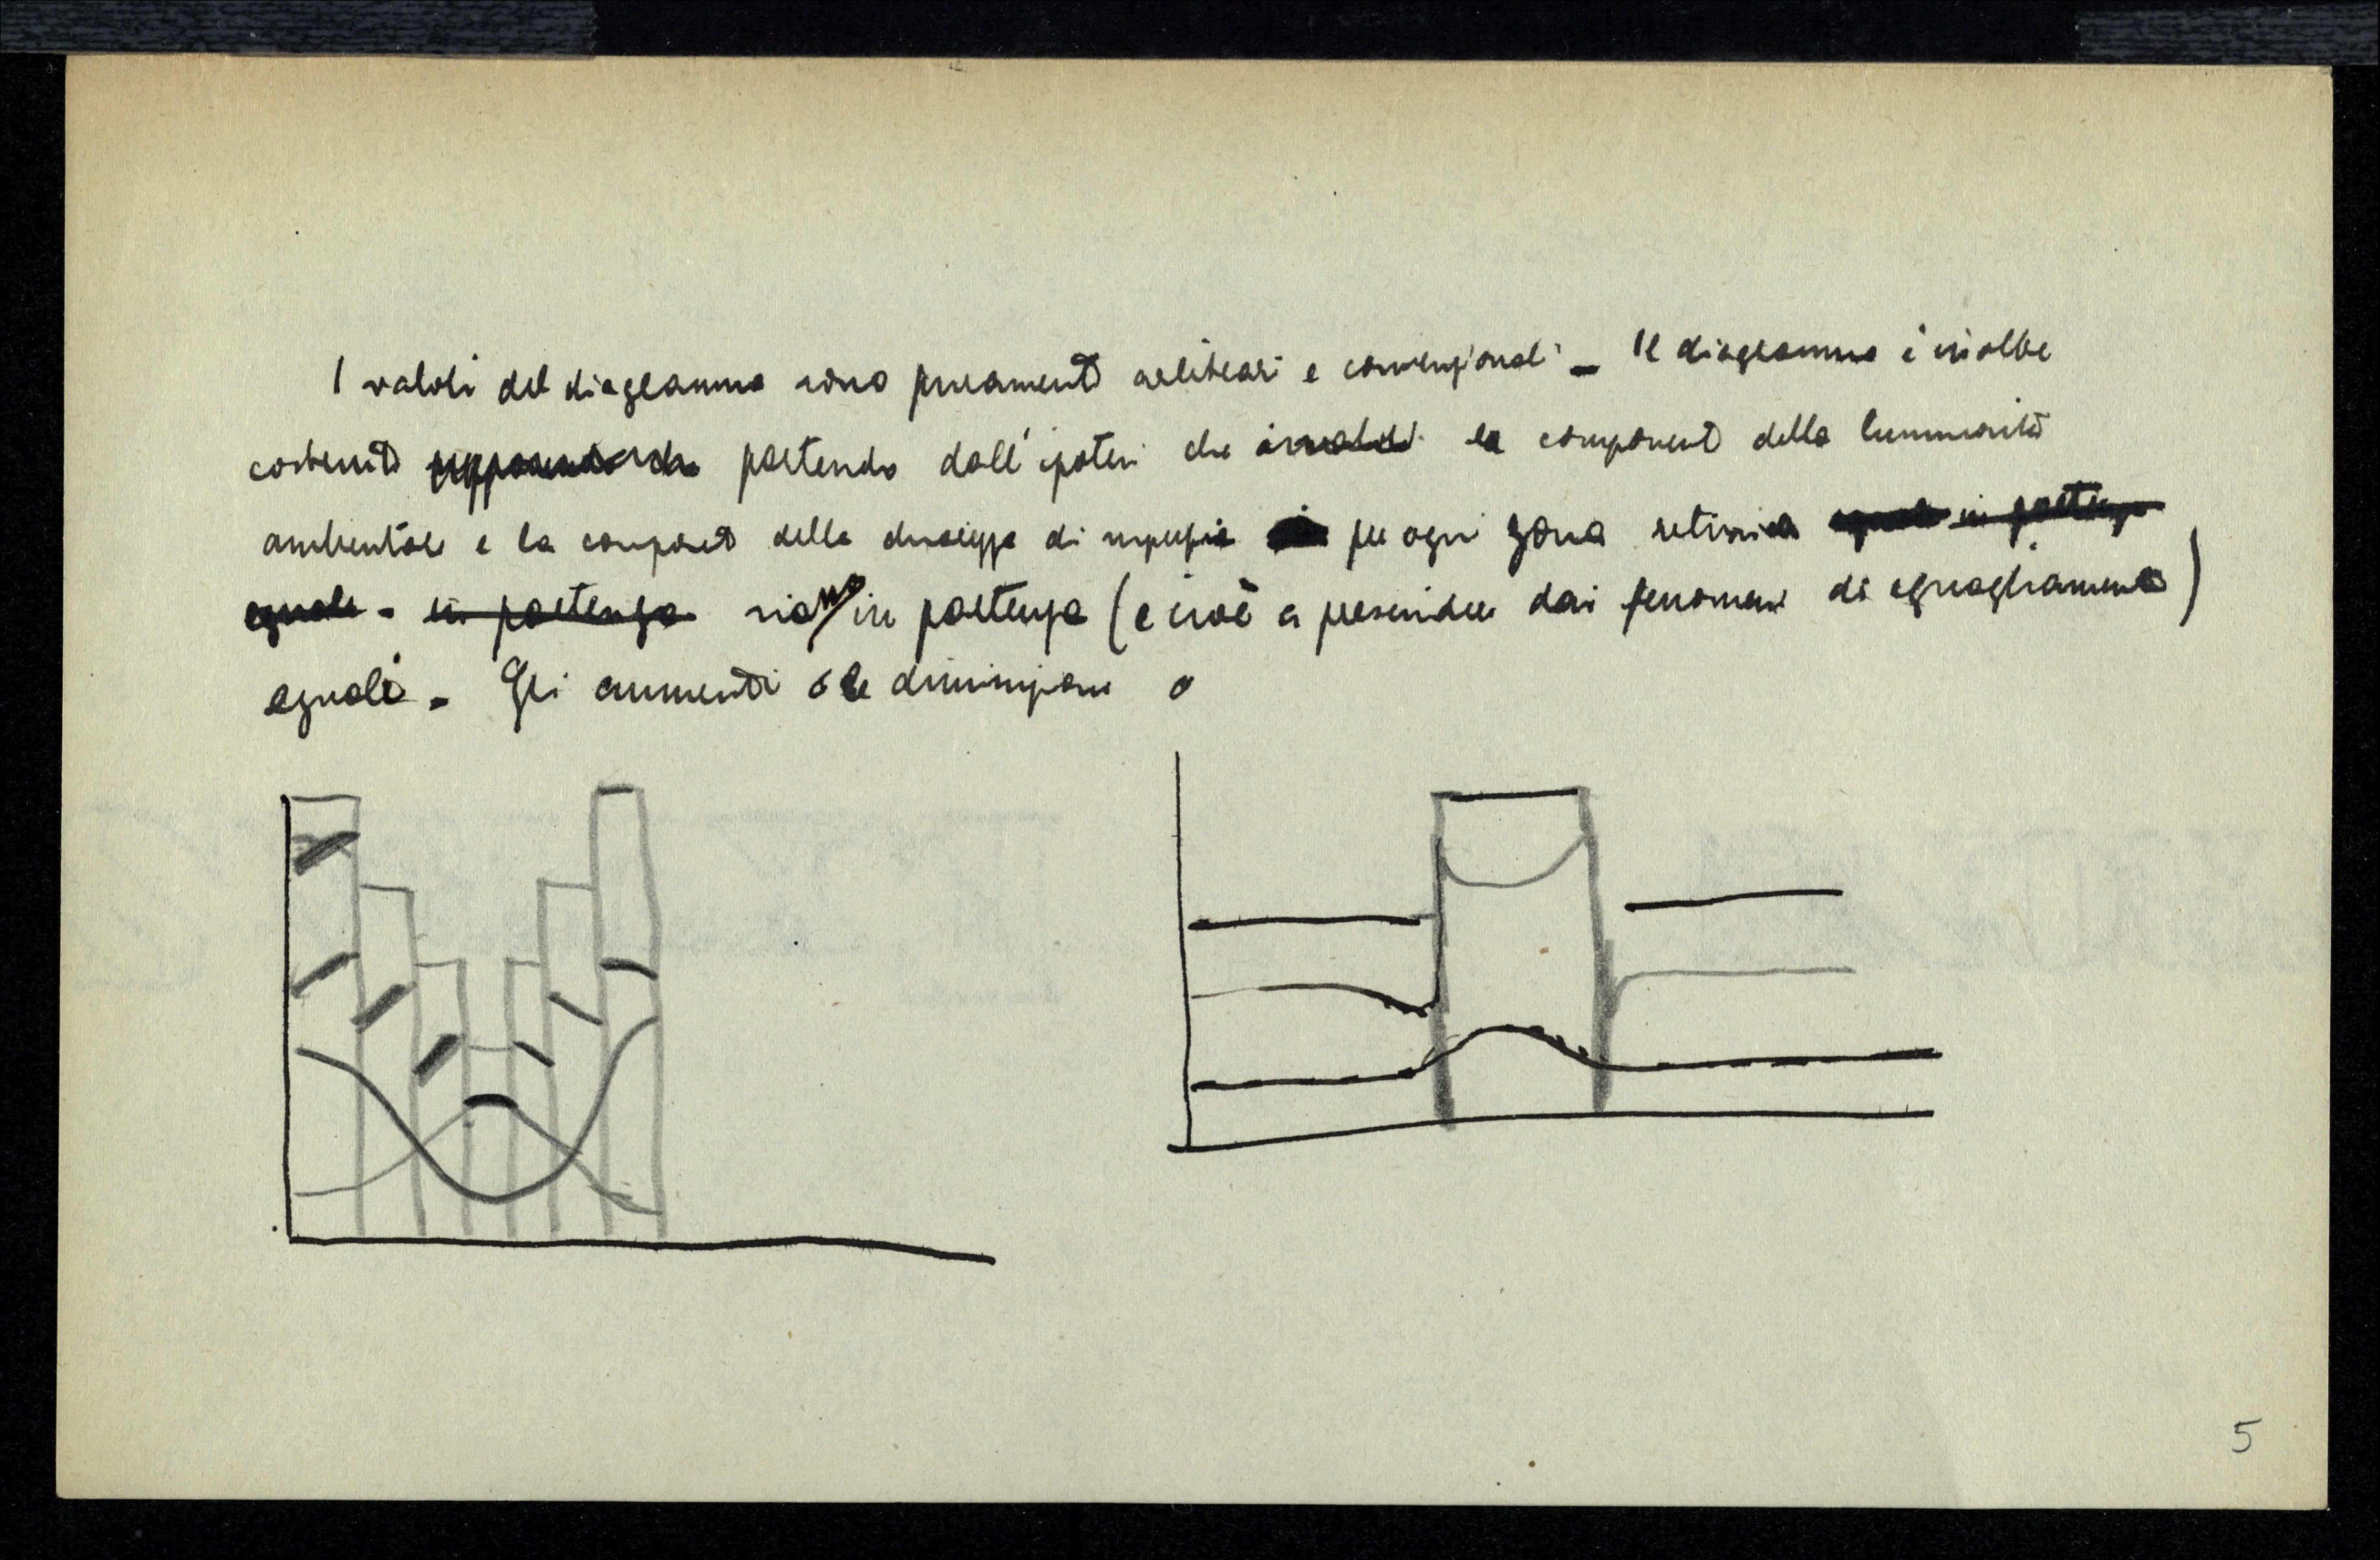 I valori del diagramma sono puramente arbitrari e convenzionali - Il diagramma è inoltre
costruito supponendo che partendo dall'ipotesi che la componente della luminosità
ambientale e la componente della chiarezza di superficie per ogni zona retinica eguale in partenza
eguale - in partenza siano in partenza (e cioè a prescindere dai fenomeni di eguagliamento)
eguali - Gli aumenti o le diminuzioni o
5